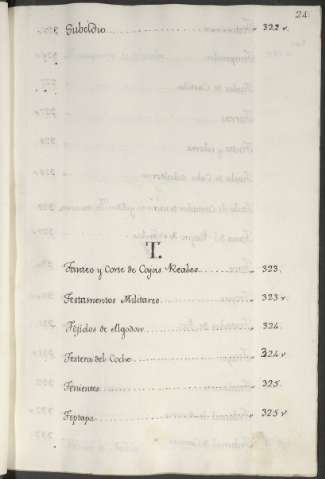 24.
Subsidio ........ 322 v.
T.
Tanteo y Corte de Cajas Reales ........ 323.
Testamentos Militares ........ 323 v
Tejidos de Algodon ........ 324
Testera del Coche ........ 324 v
Tenientes ........ 325.
325 v